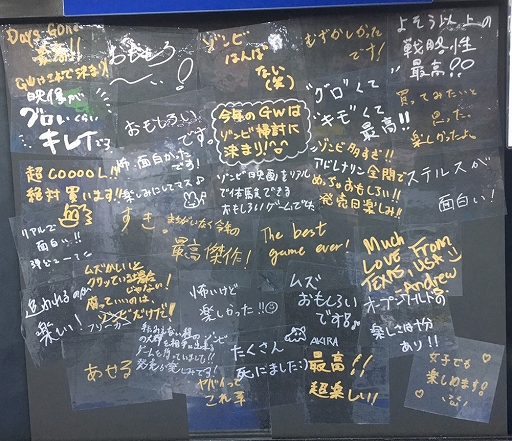 Days Gone
最高!!
GWはこれで決まり!
おもしろい!
ゾンビ
はんぱ
ない(笑)
むずかしかった
です!
よそう以上の
戦略性
最高!!
映像が
グロいくらい
キレイだろ
おもしろい
です。
今年のGWは
ゾンビ掃討に
決まり!^^
"グロ"くて
"キモ"くて
最高!!
買ってみたいと
思った。
楽しかったよ。
超COOOOL!!
絶対買います!!
怖、面白かった
です!
楽しみにしてマス♪
ゾンビ映画をリアル
で体験できる
おもしろいゲームでした
ゾンビ多すぎ!!
アドレナリン全開で
めっちゃおもしろい!!
発売日楽しみ!!
ステルスが
面白い!
リアルで
面白い!!
すき。
まちがいなく今年の
最高傑作!
The best
game ever!
Much
Love From
TEXAS, USA
-Andrew
追われるのが
楽しい!
ムズかしいと
クリっている場合
じゃない!
腐っていいのは、
ゾンビだけだ!
フリーカー
怖いけど
楽しかった!!
ムズ
おもしろい
です!
オープンワールドの
楽しさは十分
あり!!
あせる
ゲームを待っていました!!
発売が楽しみです!
ヤバイって
これ幸
たくさん
死にました:)
AKIRA
最高!!
超楽しい!!
女子でも
楽しめます!